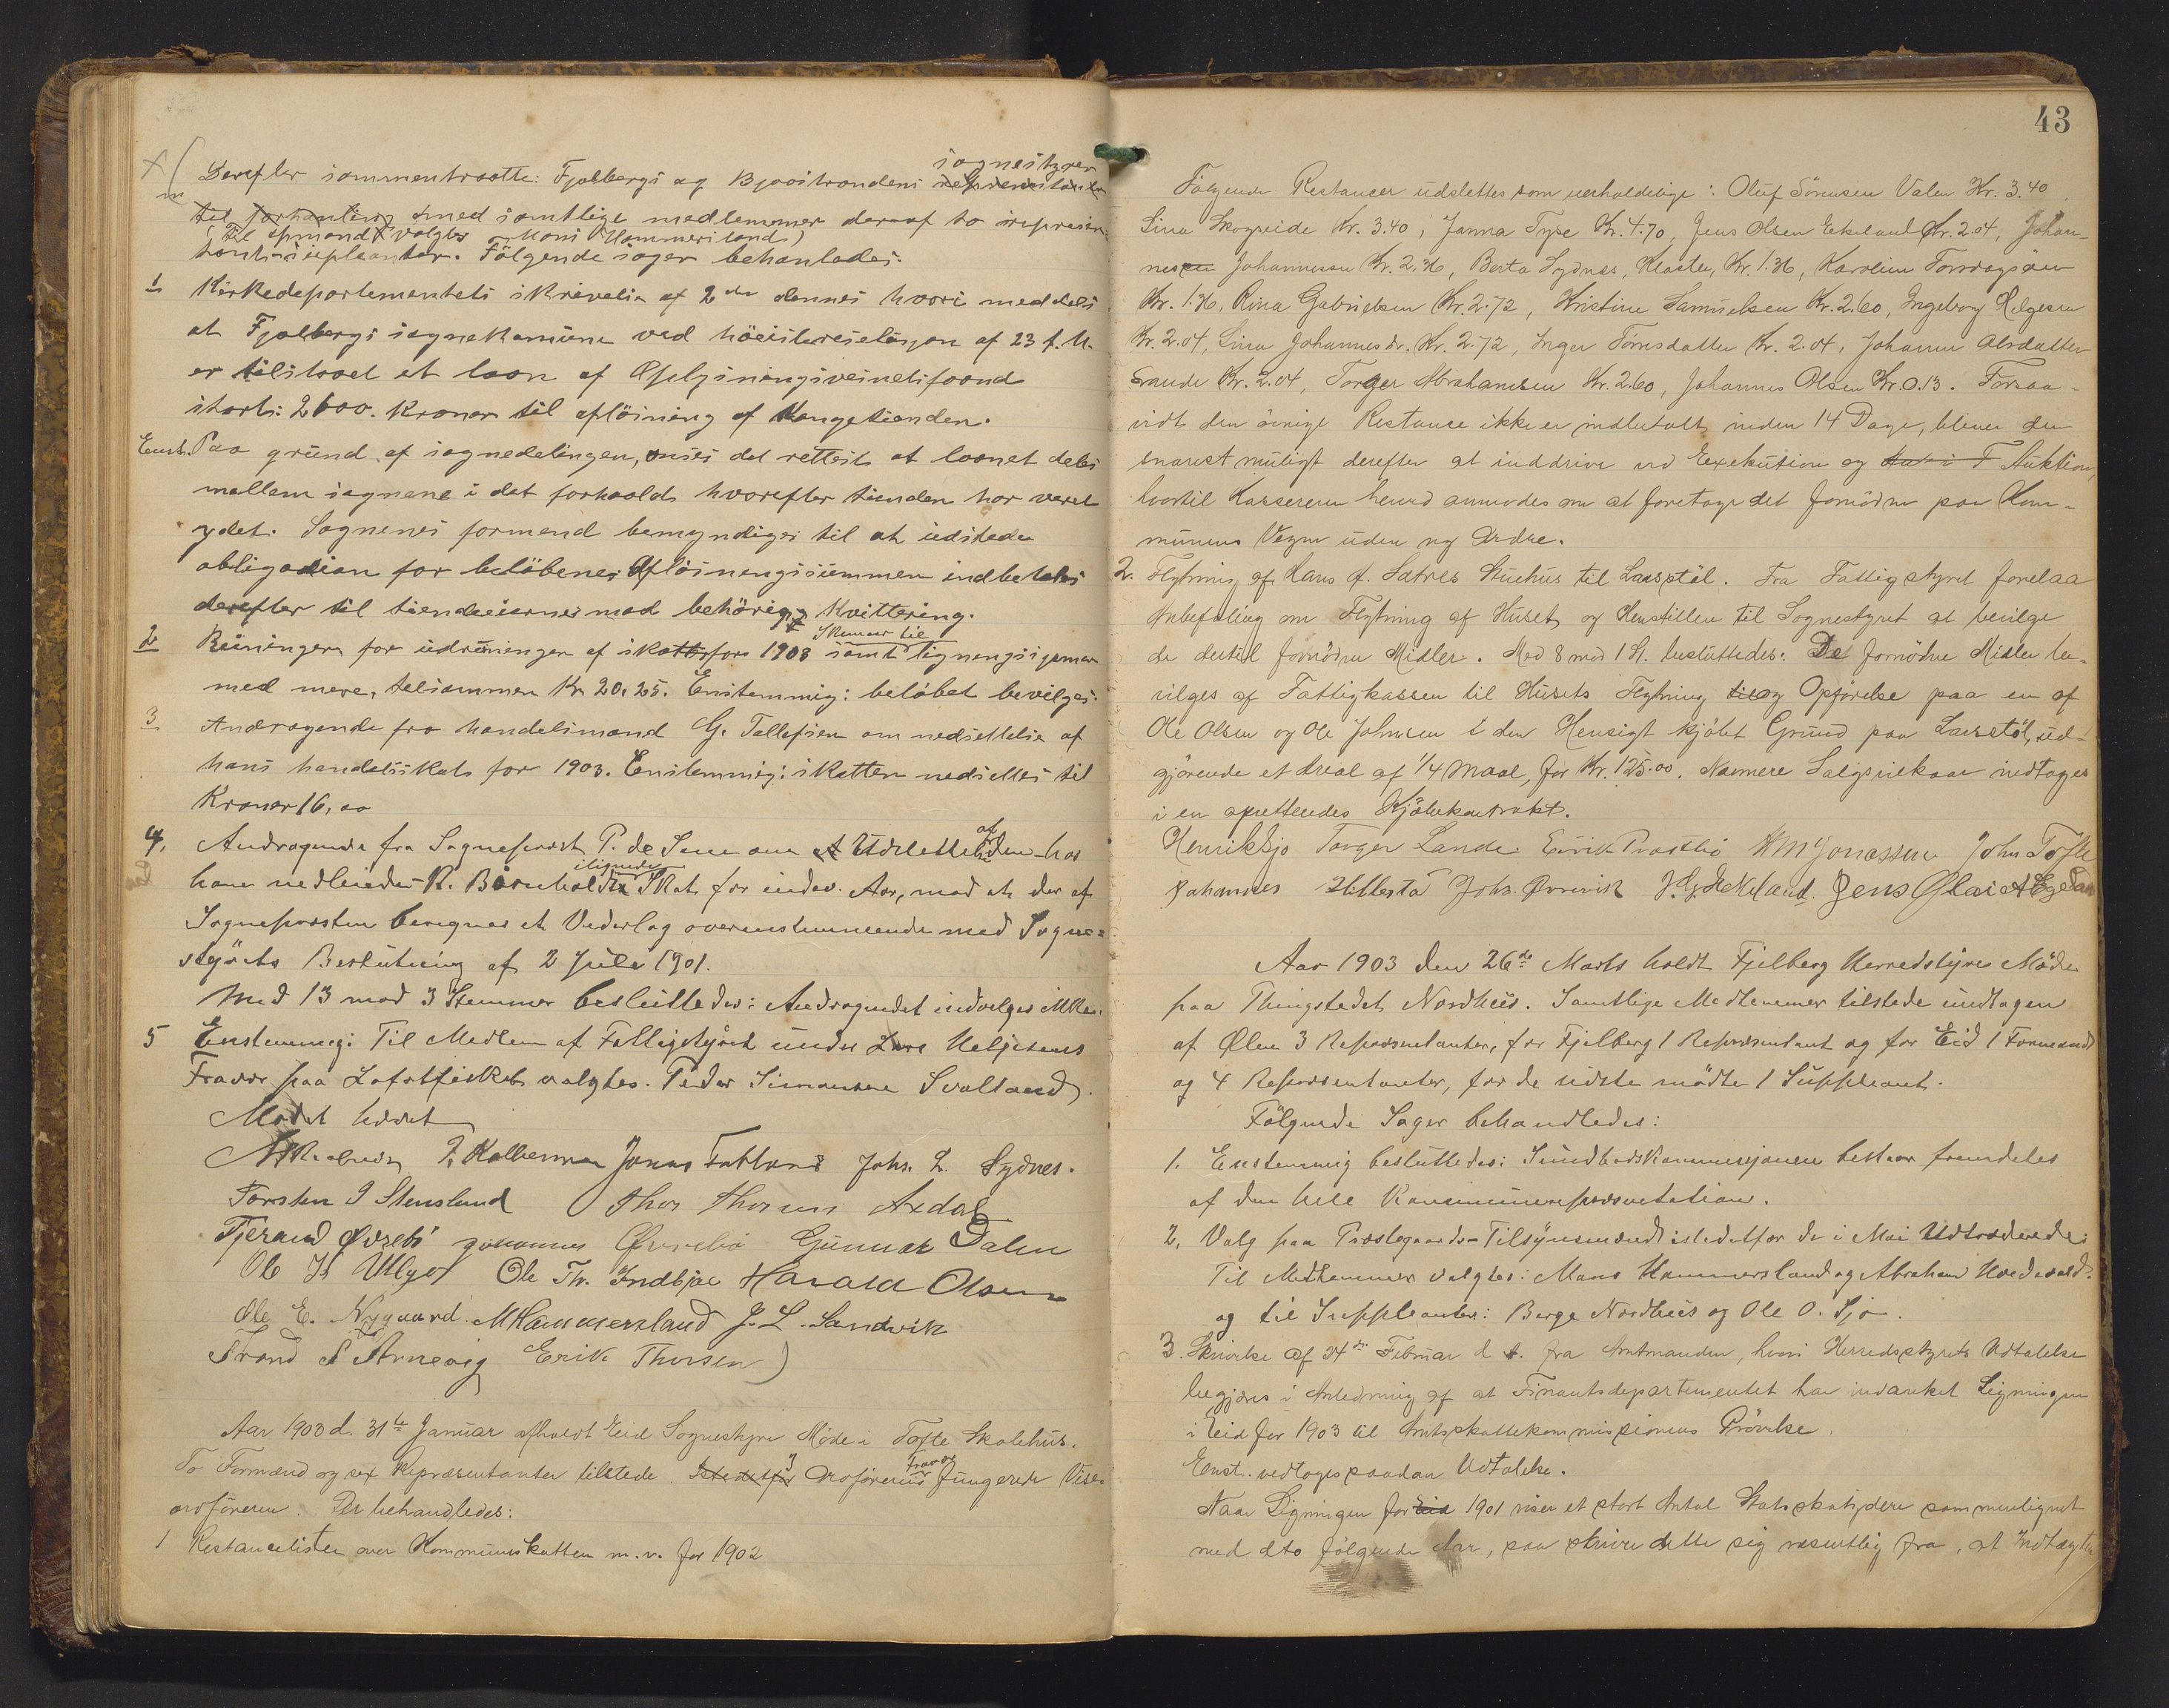 Derefter sammentraatte: Fjelbergs og Bjoastrandens sognestyrer
til forhanling med samtlige medlemmer deraf to represen-
(Til formand valgtes Mons Hammersland)
tants-supleanter. Følgende sager behanledes.
1 Kirkedepartementets skrivelse af 2den dennes hvori meddeles
at Fjelbergs sognekomune ved höiesteresolusjon af 23 f. M.
er tilstaaet et laan af Oplysningsvesenets foond
stort: 2600. Kroner til aflösning af Kongetienden.
Enst. Paa grund af sognedelingen, anses det rettest at laanet deles
mellem sognene i det forhold hvorefter tienden har været
ydet. Sognenes formend bemyndiges til at udstede
obligasion for belöbene; Aflösningssummen indbetales
derefter til tiendeeierne mod behörig Kvittering.
2 Reiningen for udreininger af skatt for 1903 samt Skemaer til ligningsigemer
med mere, tilsammen Kr 20,25. Enstemmig: belöbet bevilges.
3 Andragende fra handelsmand G. Tollefsen om nedsettelse af
hans handelsskat for 1903. Enstemmig: skatten nedsettes til
Kroner 16,00
4, Andragende fra Sogneprest P. de Seve om at Udslettelse af den hos
ham R. Bornholdt ilignede Skat for indev. Aar, mod at der af
Sognepresten beregnes et Vederlag overensstemmende med Sogne-
styrets Beslutning af 2 Juli 1901.
Med 13 mod 3 Stemmer besluttedes: Andragendet indvilges ikke.
5 Enstemmig: Til Medlem af Fattigstyret under Lars Heljesens
Fravær paa Lofotfisket valgtes Peder Simonsen Svolland.
Mødet hævet
T. Kallevaag Jonas Fatland Johs. L. Sydnes.
Torsten J Stensland Thor Thorsen Axdal
Tjerand Øvrebö Johannes Øvrebö Gunnar Dalen
Ole Js Ulvevt Ole Th. Indbjoe Harald Olsen
Ole E. Nygaard. MHammersland J. L. Sandvik
Trond S Arnevig Erik Thorsen)
Aar 1903 d. 31te Januar afholdt Eid Sognestyre Møde i Tofte Skolehus.
To Formænd og sex Repræsentanter tilstede. I Ordførerens Fravær fungerede Vise-
ordföreren. Der behandledes:
1 Restancelisten over Kommuneskatten m. v. for 1902
43
Følgende Restancer udslettes som uerholdelige: Oluf Sörensen Valen Kr. 3.40
Lina Skogseide Kr. 3.40, Janna Tyse Kr. 4.70, Jens Olsen Eikeland Kr. 2.04, Johan-
nes Johannessen Kr. 2.36, Berta Sydnes, Kloster, Kr. 1.36, Karoline
Kr. 1.36, Rina Gabrielsen Kr. 2.72, Kristine Samuelsen Kr. 2.60, Ingeborg Helgesen
Kr. 2.04, Lina Johannesdr. Kr. 2.72, Inger Törresdatter Kr. 2.04, Johanne Olsdatter
Kr. 2.04, Torger Abrahamsen Kr. 2.60, Johannes Olsen Kr. 0.13. Forsaa-
vidt den övrige Restance ikke er indbetalt inden 14 Dage, bliver den
snarest muligt derefter at inddrive ved Exekution og Auktion,
hvortil Kassereren herved anmodes om at foretage det fornødne paa Kom-
munens Vegne uden ny Ordre.
2. Flytning af Hans A. Sætres Stuehus til Laasstöl. Fra Fattigstyret forelaa
Anbefaling om Flytning af Huset og Henstillen til Sognestyret at bevilge
de dertil fornödne Midler. Med 8 mod 1 St. besluttedes: De fornödne Midler be-
vilges af Fattigkassen til Husets Flytning og Opförelse paa en af
Ole Olsen og Ole Johnsen i den Hensigt kjöbt Grund paa Laasstöl, ud-
gjörende et Areal af 1/4 Maal, for Kr. 125.00. Nærmere Salgsvilkaar indtages
i en oprettendes Kjöbekontrakt.
Henrik Sjo Torger Lande Eirik Prestbö HMJonassen John Tofte
Johannes Hillestá Johs. Örevik J. G. Eikeland. Jens Olai A Egeland
Aar 1903 den 26de Marts holdt Fjelberg Herredstyre Möde
paa Thingstedet Nordhus. Samtlige Medlemmer tilstede undtagen
af Ølen 3 Repræsentanter, for Fjelberg 1 Repræsentant og for Eid 1 Formand
og 4 Repræsentanter, for de sidste mödte 1 Suppleant.
Fölgende Sager behandledes:
1. Enstemmig besluttedes: Sundhedskommisjonen bestaar fremdeles
af den hele Kommunerepræsentation.
2, Valg paa Præstegaards-Tilsynsmænd istedetfor de i Mai Udtrædende:
Til Medlemmer valgtes: Mons Hammersland og Abraham Hvedevold.
og til Suppleanter: Børge Nordhus og Ole O. Sjo.
3. Skrivelse af 24de Februar d. A. fra Amtmanden, hvori Herredsstyrets Udtalelse
begjæres i Anledning af at Finantsdepartementet har indanket Ligningen
i Eid for 1903 til Amtsskattekommissionens Prövelse.
Enst. vedtoges saadan Udtalelse.
Naar Ligningen for 1901 viser et stort Antal Statsskatydere sammenlignet
med dto fölgende Aar, saa skriver dette sig væsentlig fra, at Indtægten